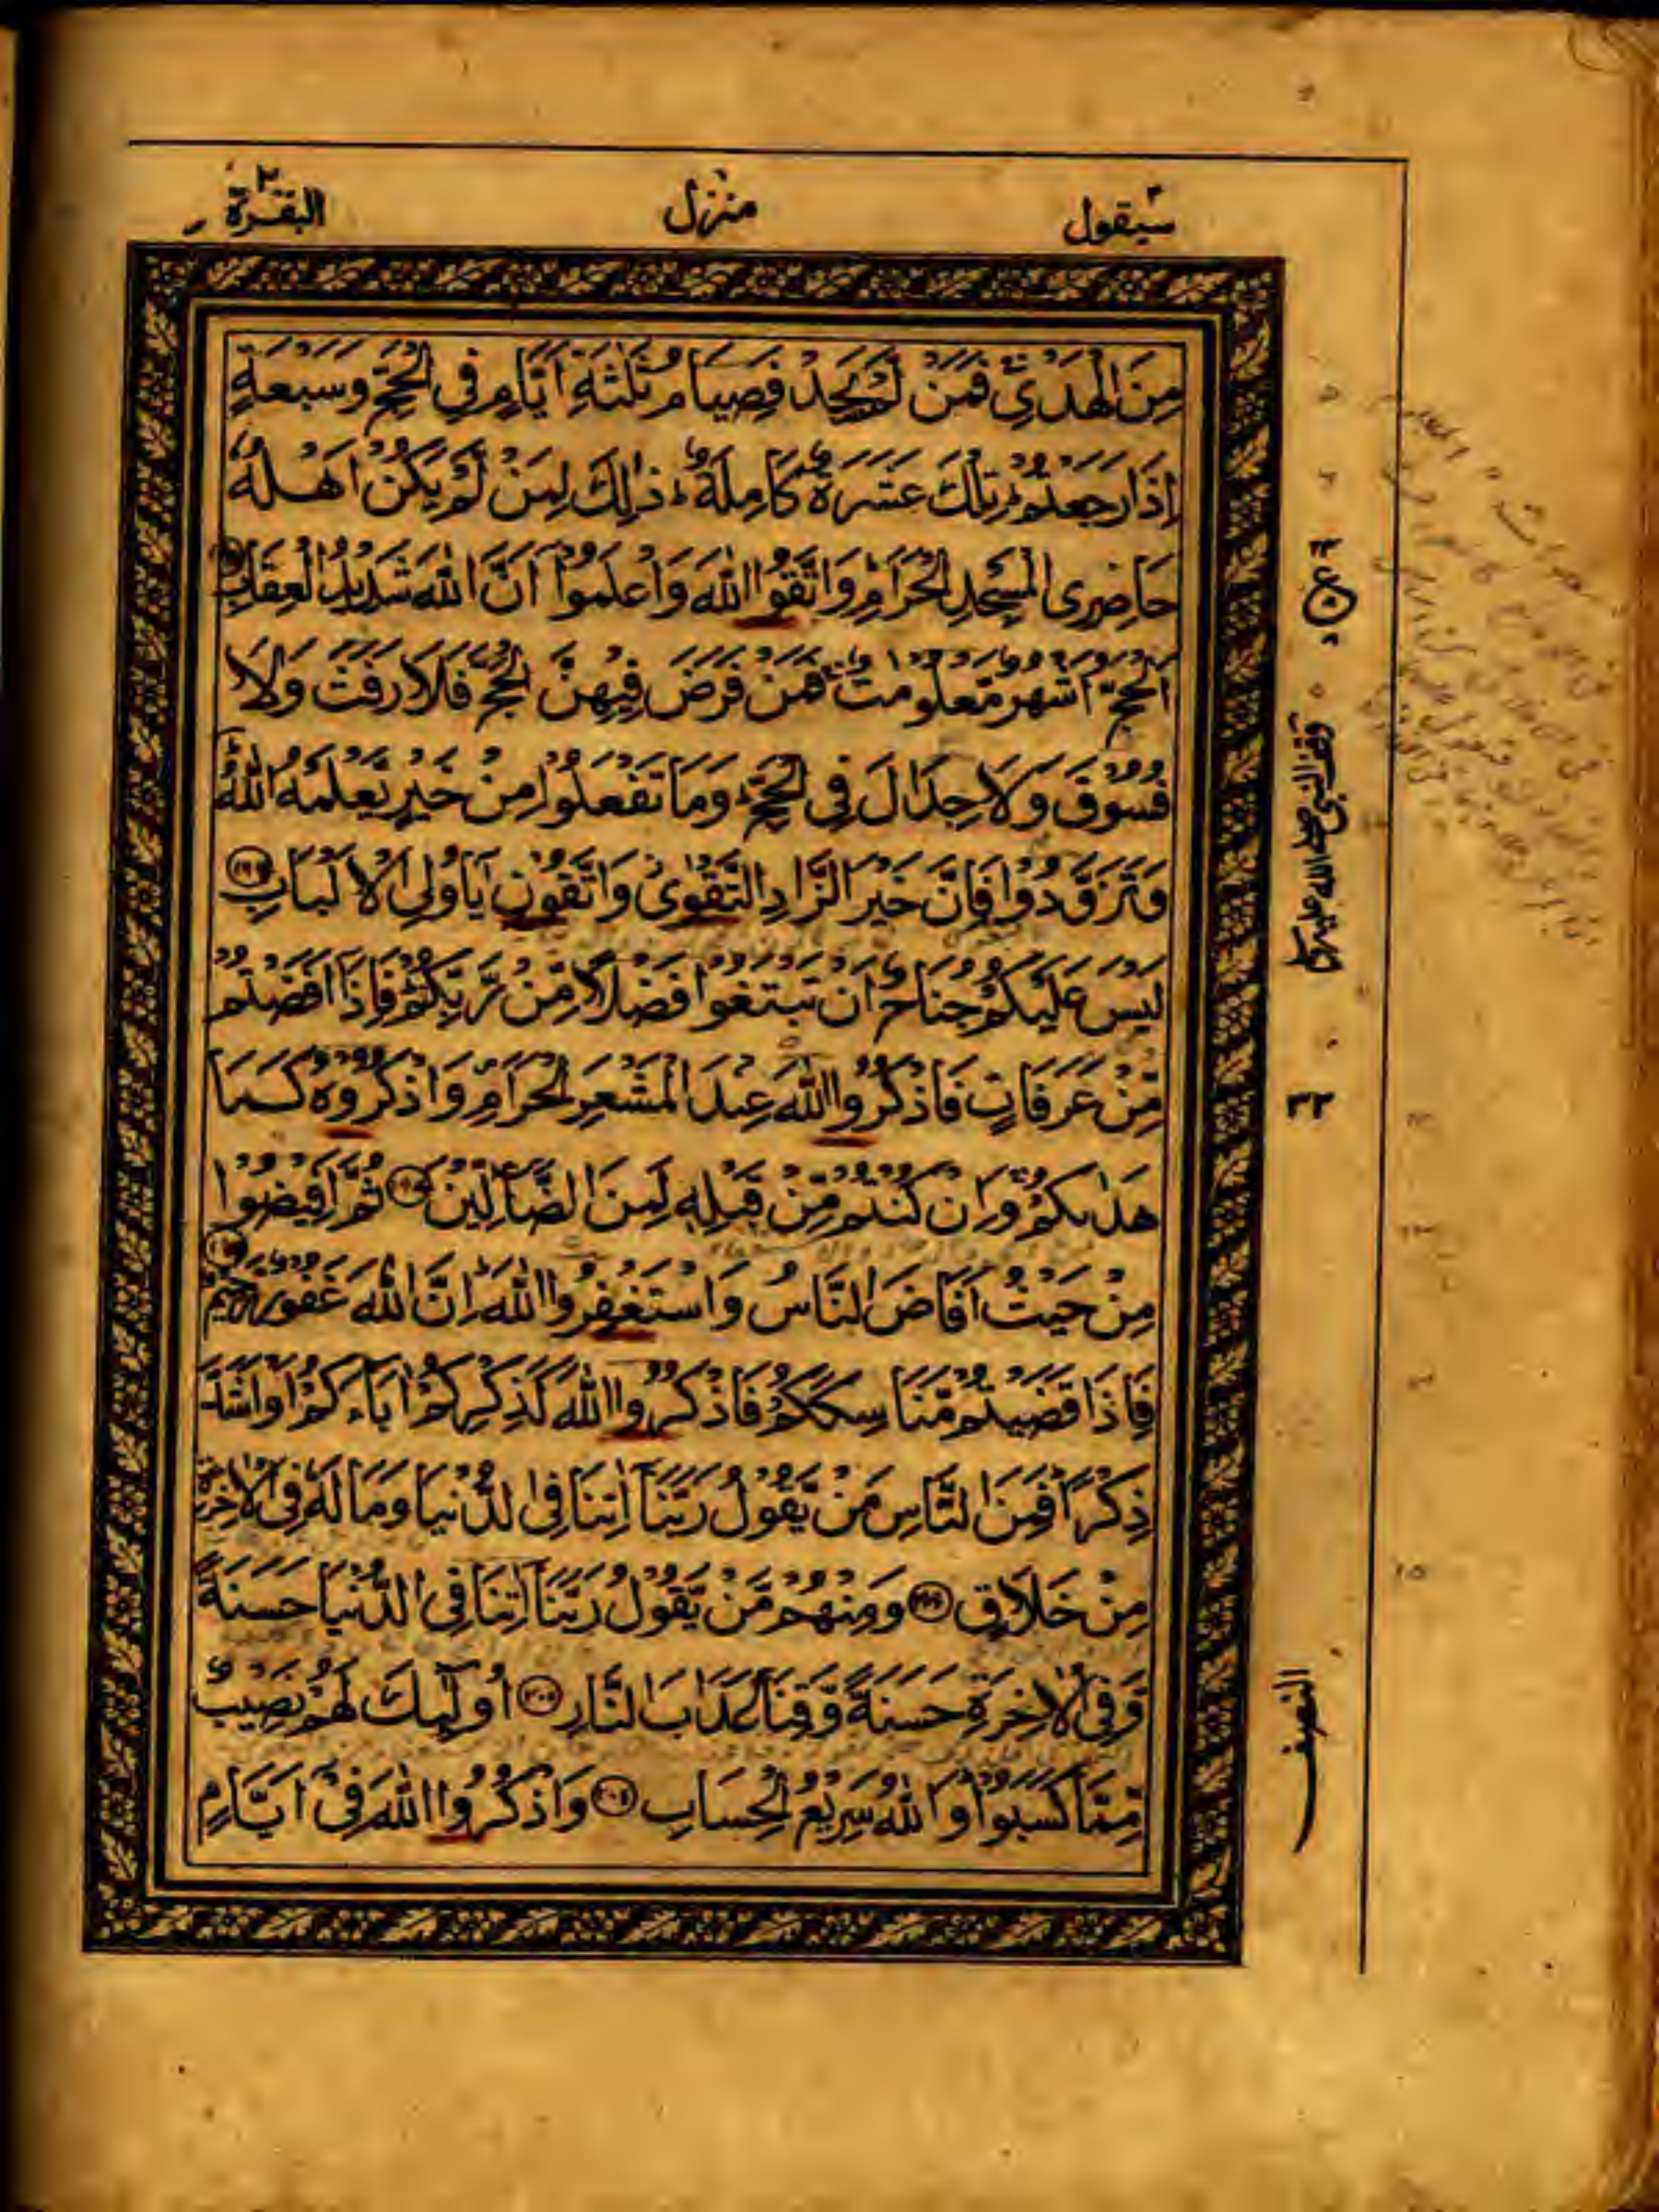 سيقول ٢ منزل ١ البقرة ٢
مِنَ الْهَدْيِ فَمَنْ لَّمْ يَجِدْ فَصِيَامُ ثَلٰثَةِ اَيَّامٍ فِي الْحَجِّ وَسَبْعَةٍ
اِذَا رَجَعْتُمْ ؕ تِلْكَ عَشَرَةٌ كَامِلَةٌ ؕ ذٰلِكَ لِمَنْ لَّمْ يَكُنْ اَهْلُهٗ
حَاضِرِي الْمَسْجِدِ الْحَرَامِ ؕ وَاتَّقُوا اللّٰهَ وَاعْلَمُوْٓا اَنَّ اللّٰهَ شَدِيْدُ الْعِقَابِ
اَلْحَجُّ اَشْهُرٌ مَّعْلُوْمٰتٌ ۚ فَمَنْ فَرَضَ فِيْهِنَّ الْحَجَّ فَلَا رَفَثَ وَلَا
فُسُوْقَ وَلَا جِدَالَ فِي الْحَجِّ ؕ وَمَا تَفْعَلُوْا مِنْ خَيْرٍ يَّعْلَمْهُ اللّٰهُ ؕ
وَتَزَوَّدُوْا فَاِنَّ خَيْرَ الزَّادِ التَّقْوٰى وَاتَّقُوْنِ يٰٓاُولِي الْاَلْبَابِ ﴿۱۹۷﴾
لَيْسَ عَلَيْكُمْ جُنَاحٌ اَنْ تَبْتَغُوْا فَضْلًا مِّنْ رَّبِّكُمْ ؕ فَاِذَآ اَفَضْتُمْ
مِّنْ عَرَفَاتٍ فَاذْكُرُوا اللّٰهَ عِنْدَ الْمَشْعَرِ الْحَرَامِ وَاذْكُرُوْهُ كَمَا
هَدٰىكُمْ ۚ وَاِنْ كُنْتُمْ مِّنْ قَبْلِهٖ لَمِنَ الضَّآلِّيْنَ ﴿۱۹۸﴾ ثُمَّ اَفِيْضُوْا
مِنْ حَيْثُ اَفَاضَ النَّاسُ وَاسْتَغْفِرُوا اللّٰهَ ؕ اِنَّ اللّٰهَ غَفُوْرٌ رَّحِيْمٌ
فَاِذَا قَضَيْتُمْ مَّنَاسِكَكُمْ فَاذْكُرُوا اللّٰهَ كَذِكْرِكُمْ اٰبَآءَكُمْ اَوْ اَشَدَّ
ذِكْرًا ؕ فَمِنَ النَّاسِ مَنْ يَّقُوْلُ رَبَّنَآ اٰتِنَا فِي الدُّنْيَا وَمَا لَهٗ فِي الْاٰخِرَةِ
مِنْ خَلَاقٍ ﴿۲۰۰﴾ وَمِنْهُمْ مَّنْ يَّقُوْلُ رَبَّنَآ اٰتِنَا فِي الدُّنْيَا حَسَنَةً
وَّفِي الْاٰخِرَةِ حَسَنَةً وَّقِنَا عَذَابَ النَّارِ ﴿۲۰۱﴾ اُولٰٓئِكَ لَهُمْ نَصِيْبٌ
مِّمَّا كَسَبُوْا ؕ وَاللّٰهُ سَرِيْعُ الْحِسَابِ ﴿۲۰۲﴾ وَاذْكُرُوا اللّٰهَ فِيْٓ اَيَّامٍ
وقف النبي صلى الله عليه وسلم
النصف